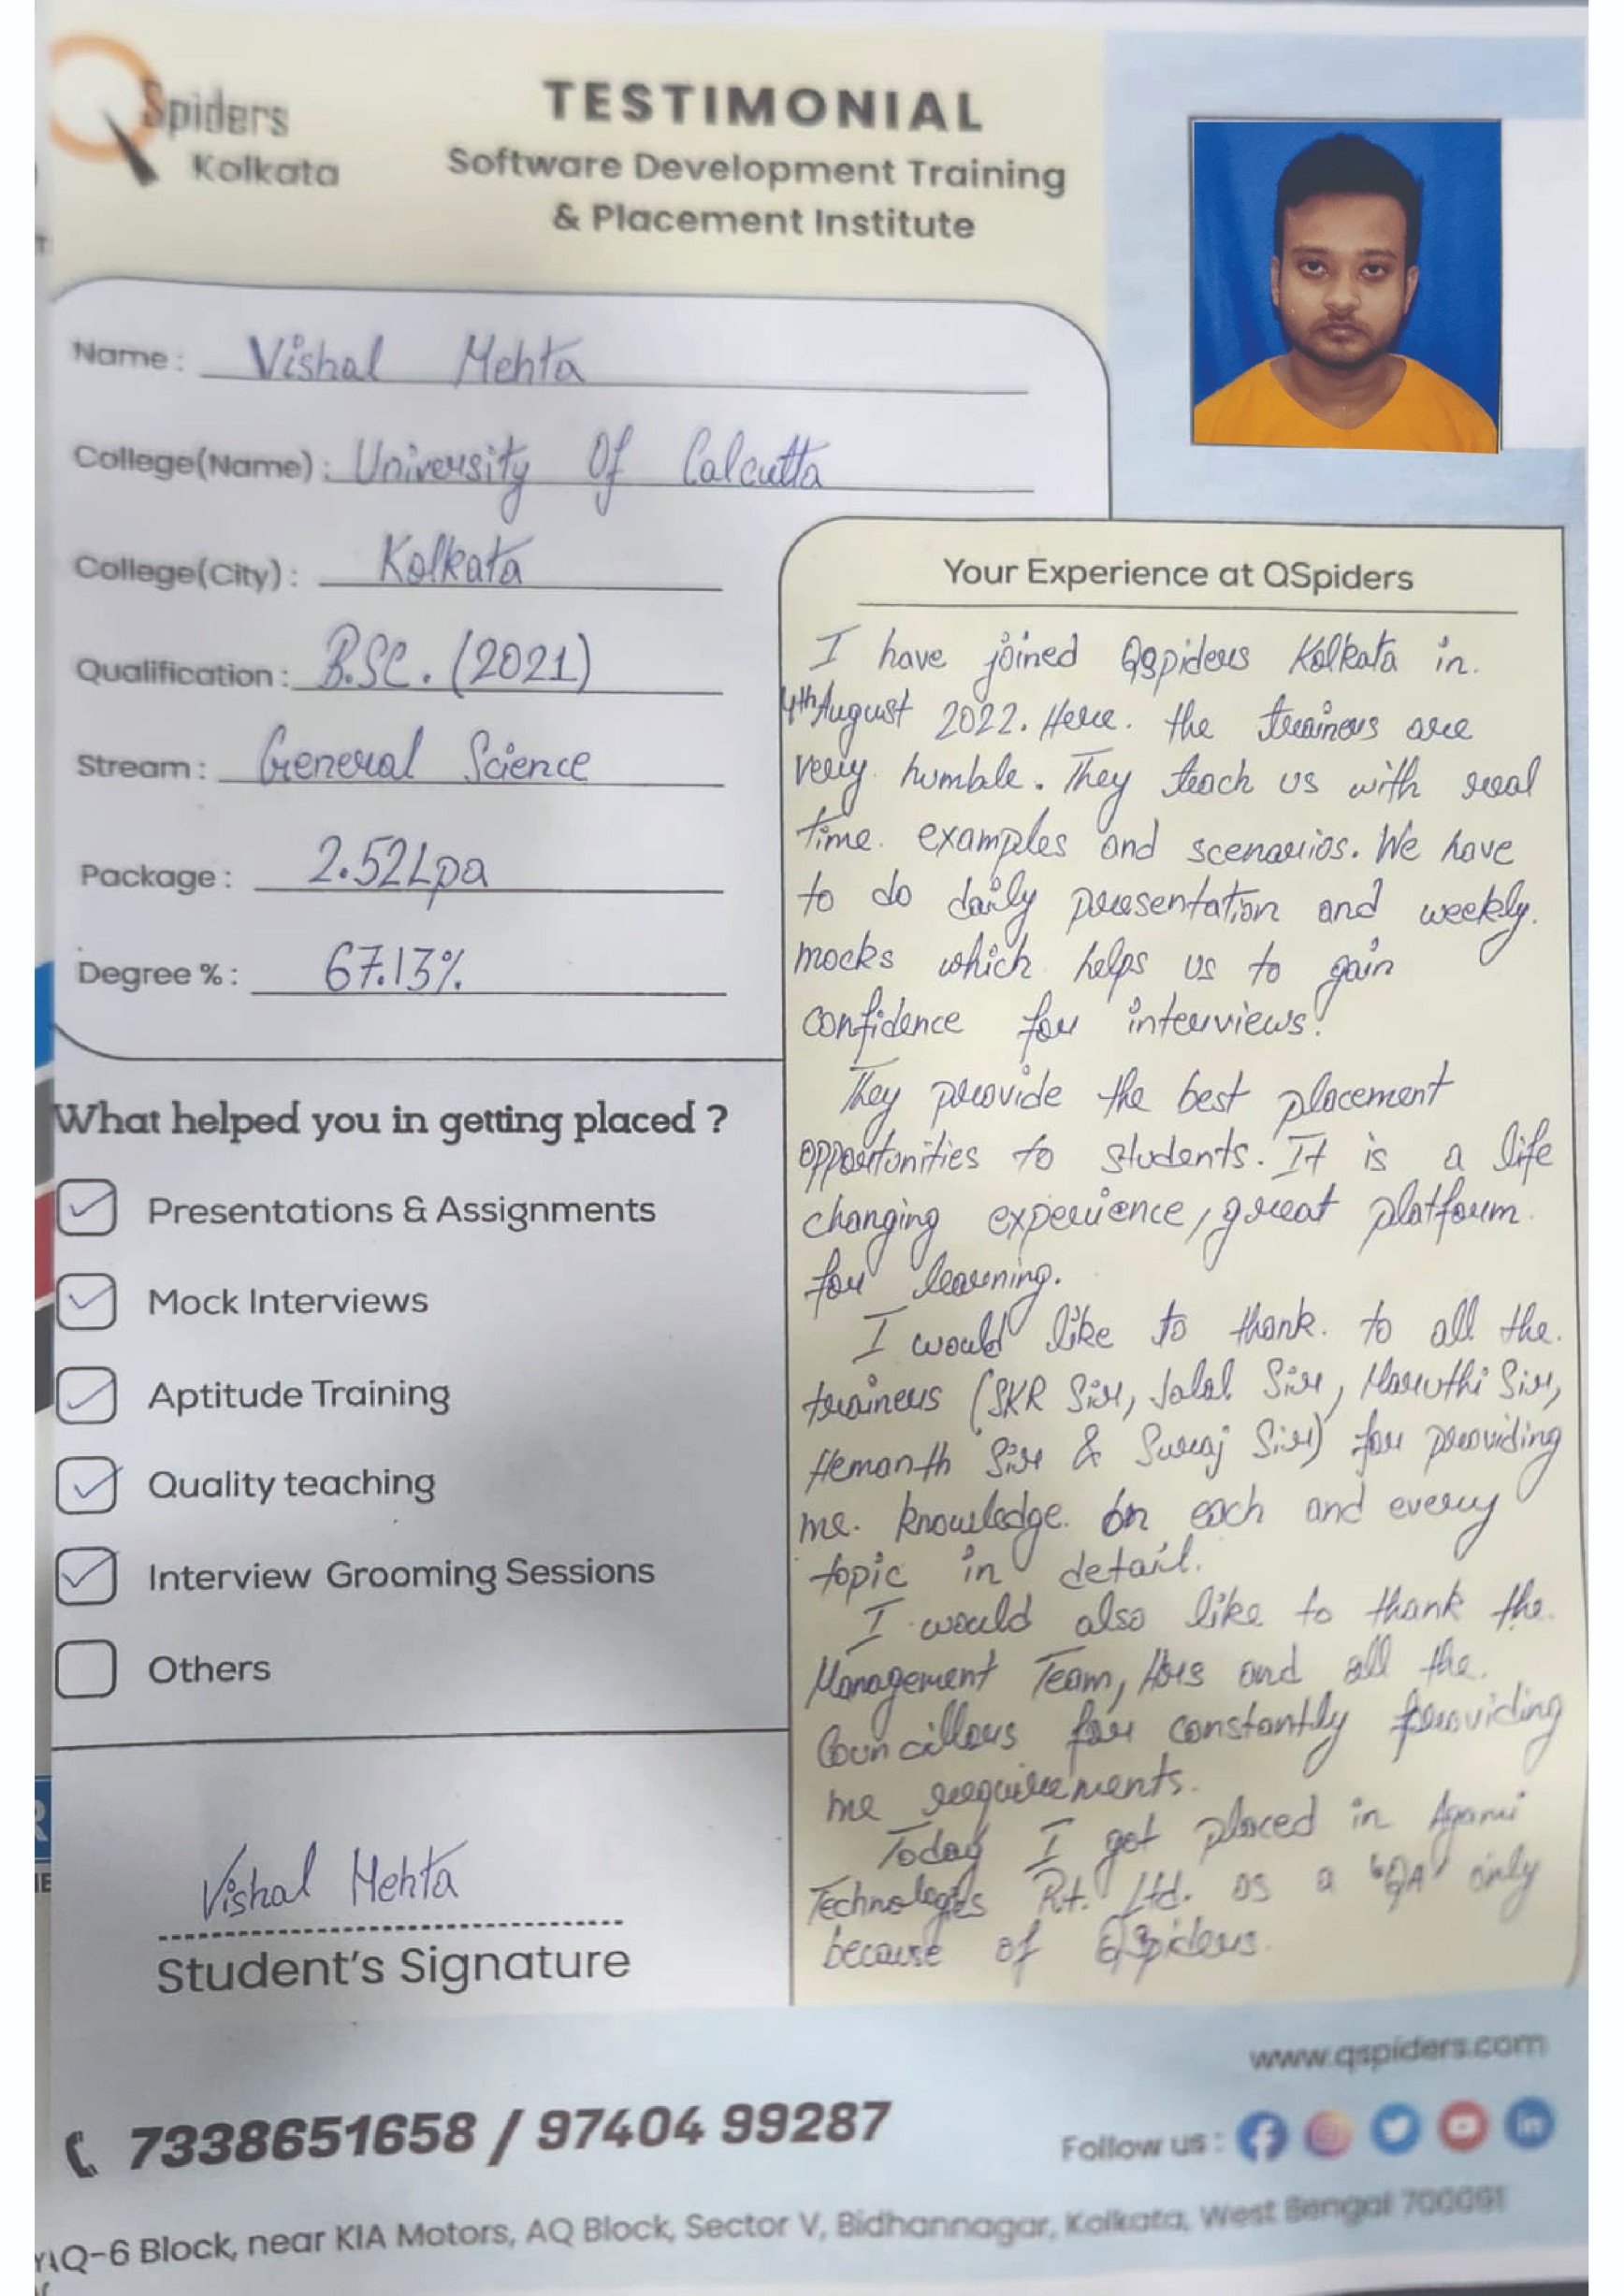 QSpiders
Kolkata
TESTIMONIAL
Software Development Training
& Placement Institute
Name : Vishal Mehta
College(Name) : University Of Calcutta
College(City) : Kolkata
Qualification : B.SC. (2021)
Stream : General Science
Package : 2.52Lpa
Degree % : 67.13%
What helped you in getting placed ?
Presentations & Assignments
Mock Interviews
Aptitude Training
Quality teaching
Interview Grooming Sessions
Others
Vishal Mehta
Student's Signature
Your Experience at QSpiders
I have joined Qspiders Kolkata in.
4th August 2022. Here. the trainers are
very humble. They teach us with real
time. examples and scenarios. We have
to do daily presentation and weekly.
mocks which helps us to gain
confidence for interviews!
They provide the best placement
opportunities to students. It is a life
changing experience, great platform.
for learning.
I would like to thank. to all the.
trainers (SKR Sir, Jalal Sir, Maruthi Sir,
Hemanth Sir & Suraj Sir) for providing
me. knowledge. on each and every
topic in detail.
I would also like to thank the.
Management Team, and all the.
Councillors for constantly providing
me requirements.
Today I got placed in Agami
Technologies Pvt. Ltd. as a "QA" only
because of QSpiders.
www.qspiders.com
7338651658 / 97404 99287
Follow us :
AQ-6 Block, near KIA Motors, AQ Block, Sector V, Bidhannagar, Kolkata, West Bengal 700091